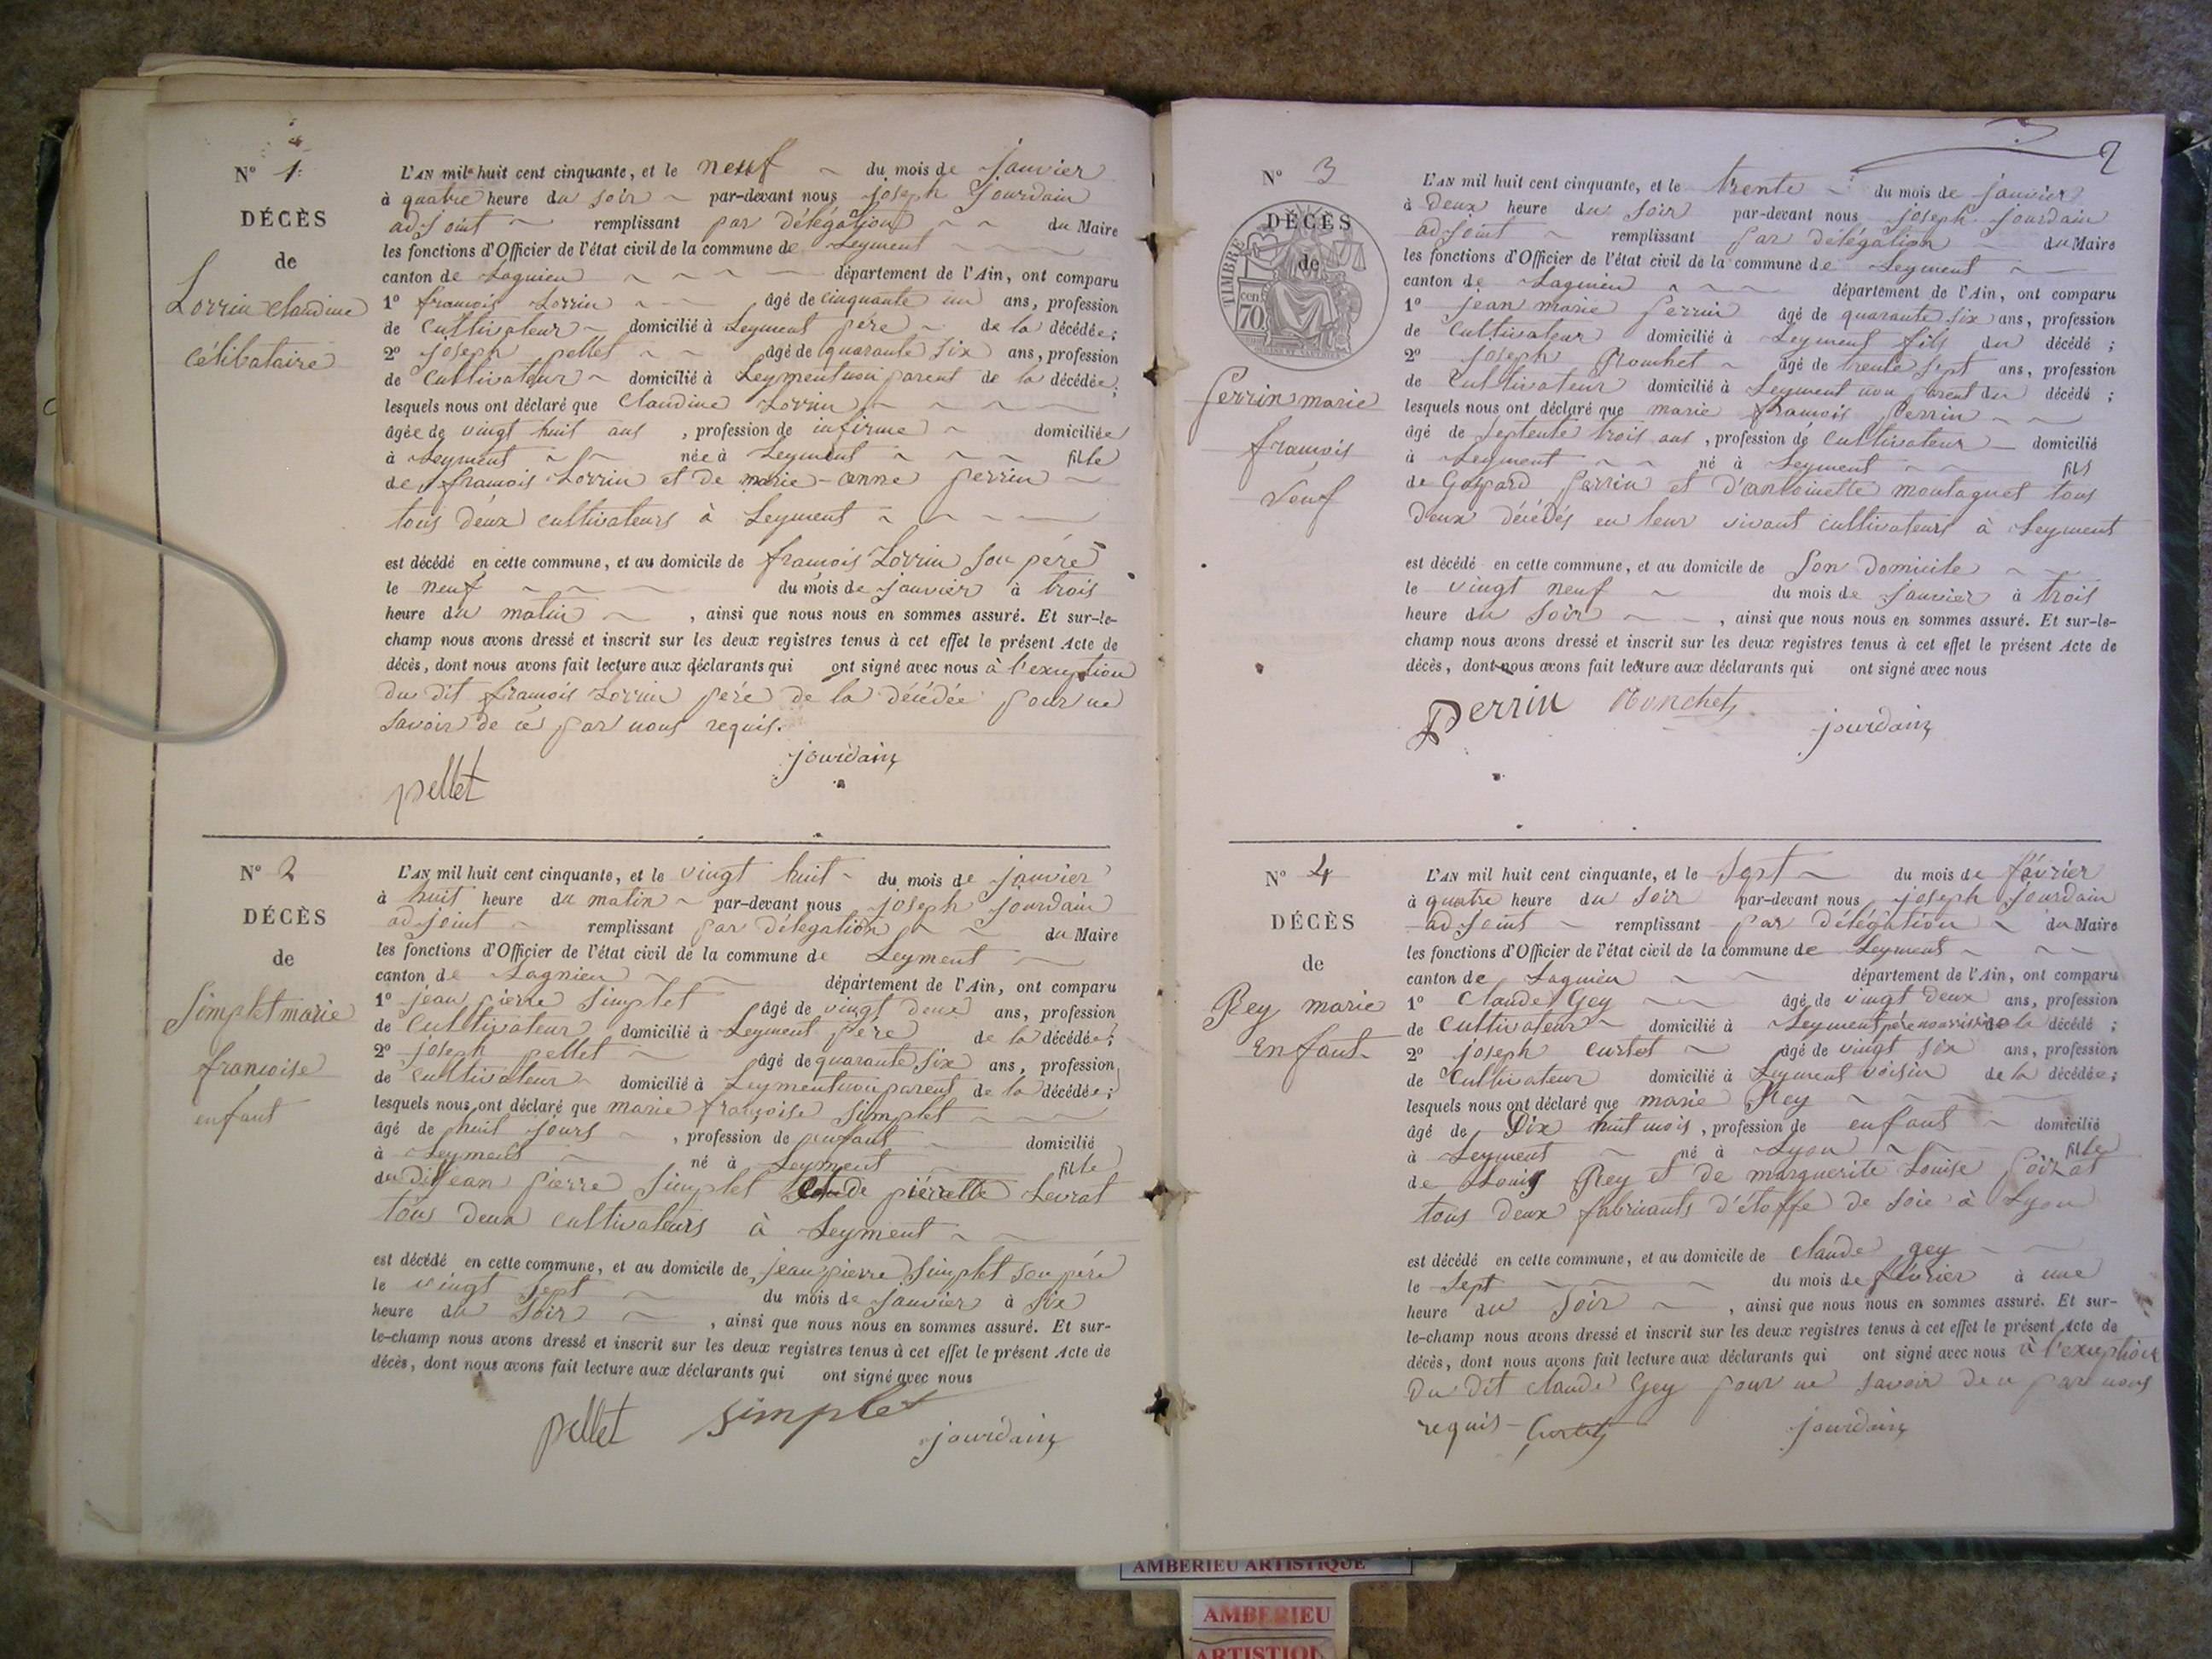 N° 1
DÉCÈS
de
Lorrin Claudine
Célibataire
L'AN mil huit cent cinquante, et le neuf du mois de janvier
à quatre heure du soir par-devant nous joseph jourdain
adjoint remplissant par délégation du Maire
les fonctions d'Officier de l'état civil de la commune de Leyment
canton de Lagnieu département de l'Ain, ont comparu
1° françois Lorrin âgé de cinquante un ans, profession
de Cultivateur domicilié à Leyment père de la décédée;
2° joseph pellet âgé de quarante six ans, profession
de Cultivateur domicilié à Leyment non parent de la décédée;
lesquels nous ont déclaré que Claudine Lorrin
âgée de vingt huit ans, profession de infirme domiciliée
à Leyment née à Leyment fille
de françois Lorrin et de marie-anne perrin
tous deux cultivateurs à Leyment
est décédé en cette commune, et au domicile de françois Lorrin son père
le neuf du mois de janvier à trois
heure du matin, ainsi que nous nous en sommes assuré. Et sur-le-
champ nous avons dressé et inscrit sur les deux registres tenus à cet effet le présent Acte de
décès, dont nous avons fait lecture aux déclarants qui ont signé avec nous à l'exception
du dit françois Lorrin père de la décédée pour ne
savoir de ce par nous requis.
jourdain
pellet
N° 2
DÉCÈS
de
Simplet marie
francoise
enfant
L'AN mil huit cent cinquante, et le vingt huit du mois de janvier
à huit heure du matin par-devant nous joseph jourdain
adjoint remplissant par délégation du Maire
les fonctions d'Officier de l'état civil de la commune de Leyment
canton de Lagnieu département de l'Ain, ont comparu
1° jean pierre Simplet âgé de vingt deux ans, profession
de Cultivateur domicilié à Leyment père de la décédée;
2° joseph pellet âgé de quarante six ans, profession
de Cultivateur domicilié à Leyment non parent de la décédée;
lesquels nous ont déclaré que marie françoise simplet
âgé de huit jours, profession de enfant domicilié
à Leyment né à Leyment fille
du dit jean pierre Simplet de pierrette Levrat
tous deux cultivateurs à Leyment
est décédé en cette commune, et au domicile de jean pierre Simplet son père
le vingt sept du mois de janvier à six
heure du soir, ainsi que nous nous en sommes assuré. Et sur-
le-champ nous avons dressé et inscrit sur les deux registres tenus à cet effet le présent Acte de
décès, dont nous avons fait lecture aux déclarants qui ont signé avec nous
pellet simplet jourdain
2
N° 3
DÉCÈS
de
TIMBRE
70 cen
Perrin marie
françois
Veuf
L'AN mil huit cent cinquante, et le trente du mois de janvier
à deux heure du soir par-devant nous joseph jourdain
adjoint remplissant par délégation du Maire
les fonctions d'Officier de l'état civil de la commune de Leyment
canton de Lagnieu département de l'Ain, ont comparu
1° jean marie perrin âgé de quarante six ans, profession
de Cultivateur domicilié à Leyment fils du décédé;
2° joseph âgé de trente sept ans, profession
de Cultivateur domicilié à Leyment non parent du décédé;
lesquels nous ont déclaré que marie françois Perrin
âgé de septente trois ans, profession de Cultivateur domicilié
à Leyment né à Leyment fils
de Gaspard perrin et d'antoinette montagnet tous
deux décédés en leur vivant cultivateurs à Leyment
est décédé en cette commune, et au domicile de son domicile
le vingt neuf du mois de janvier à trois
heure du soir, ainsi que nous nous en sommes assuré. Et sur-le-
champ nous avons dressé et inscrit sur les deux registres tenus à cet effet le présent Acte de
décès, dont nous avons fait lecture aux déclarants qui ont signé avec nous
Perrin jourdain
N° 4
DÉCÈS
de
Rey marie
enfant
L'AN mil huit cent cinquante, et le sept du mois de février
à quatre heure du soir par-devant nous joseph jourdain
adjoint remplissant par délégation du Maire
les fonctions d'Officier de l'état civil de la commune de Leyment
canton de Lagnieu département de l'Ain, ont comparu
1° Claude Gey âgé de vingt deux ans, profession
de Cultivateur domicilié à Leyment père nourricier de la décédé;
2° joseph curtet âgé de vingt six ans, profession
de Cultivateur domicilié à Leyment voisin de la décédée;
lesquels nous ont déclaré que marie Rey
âgé de Dix huit mois, profession de enfant domicilié
à Leyment né à Lyon fille
de Louis Rey et de marguerite Louise poizat
tous deux fabricants d'étoffe de soie à Lyon
est décédé en cette commune, et au domicile de claude gey
le sept du mois de février à une
heure du soir, ainsi que nous nous en sommes assuré. Et sur-
le-champ nous avons dressé et inscrit sur les deux registres tenus à cet effet le présent Acte de
décès, dont nous avons fait lecture aux déclarants qui ont signé avec nous à l'exception
du dit claude Gey pour ne savoir de ce par nous
requis Curtet jourdain
AMBERIEU ARTISTIQUE
AMBERIEU